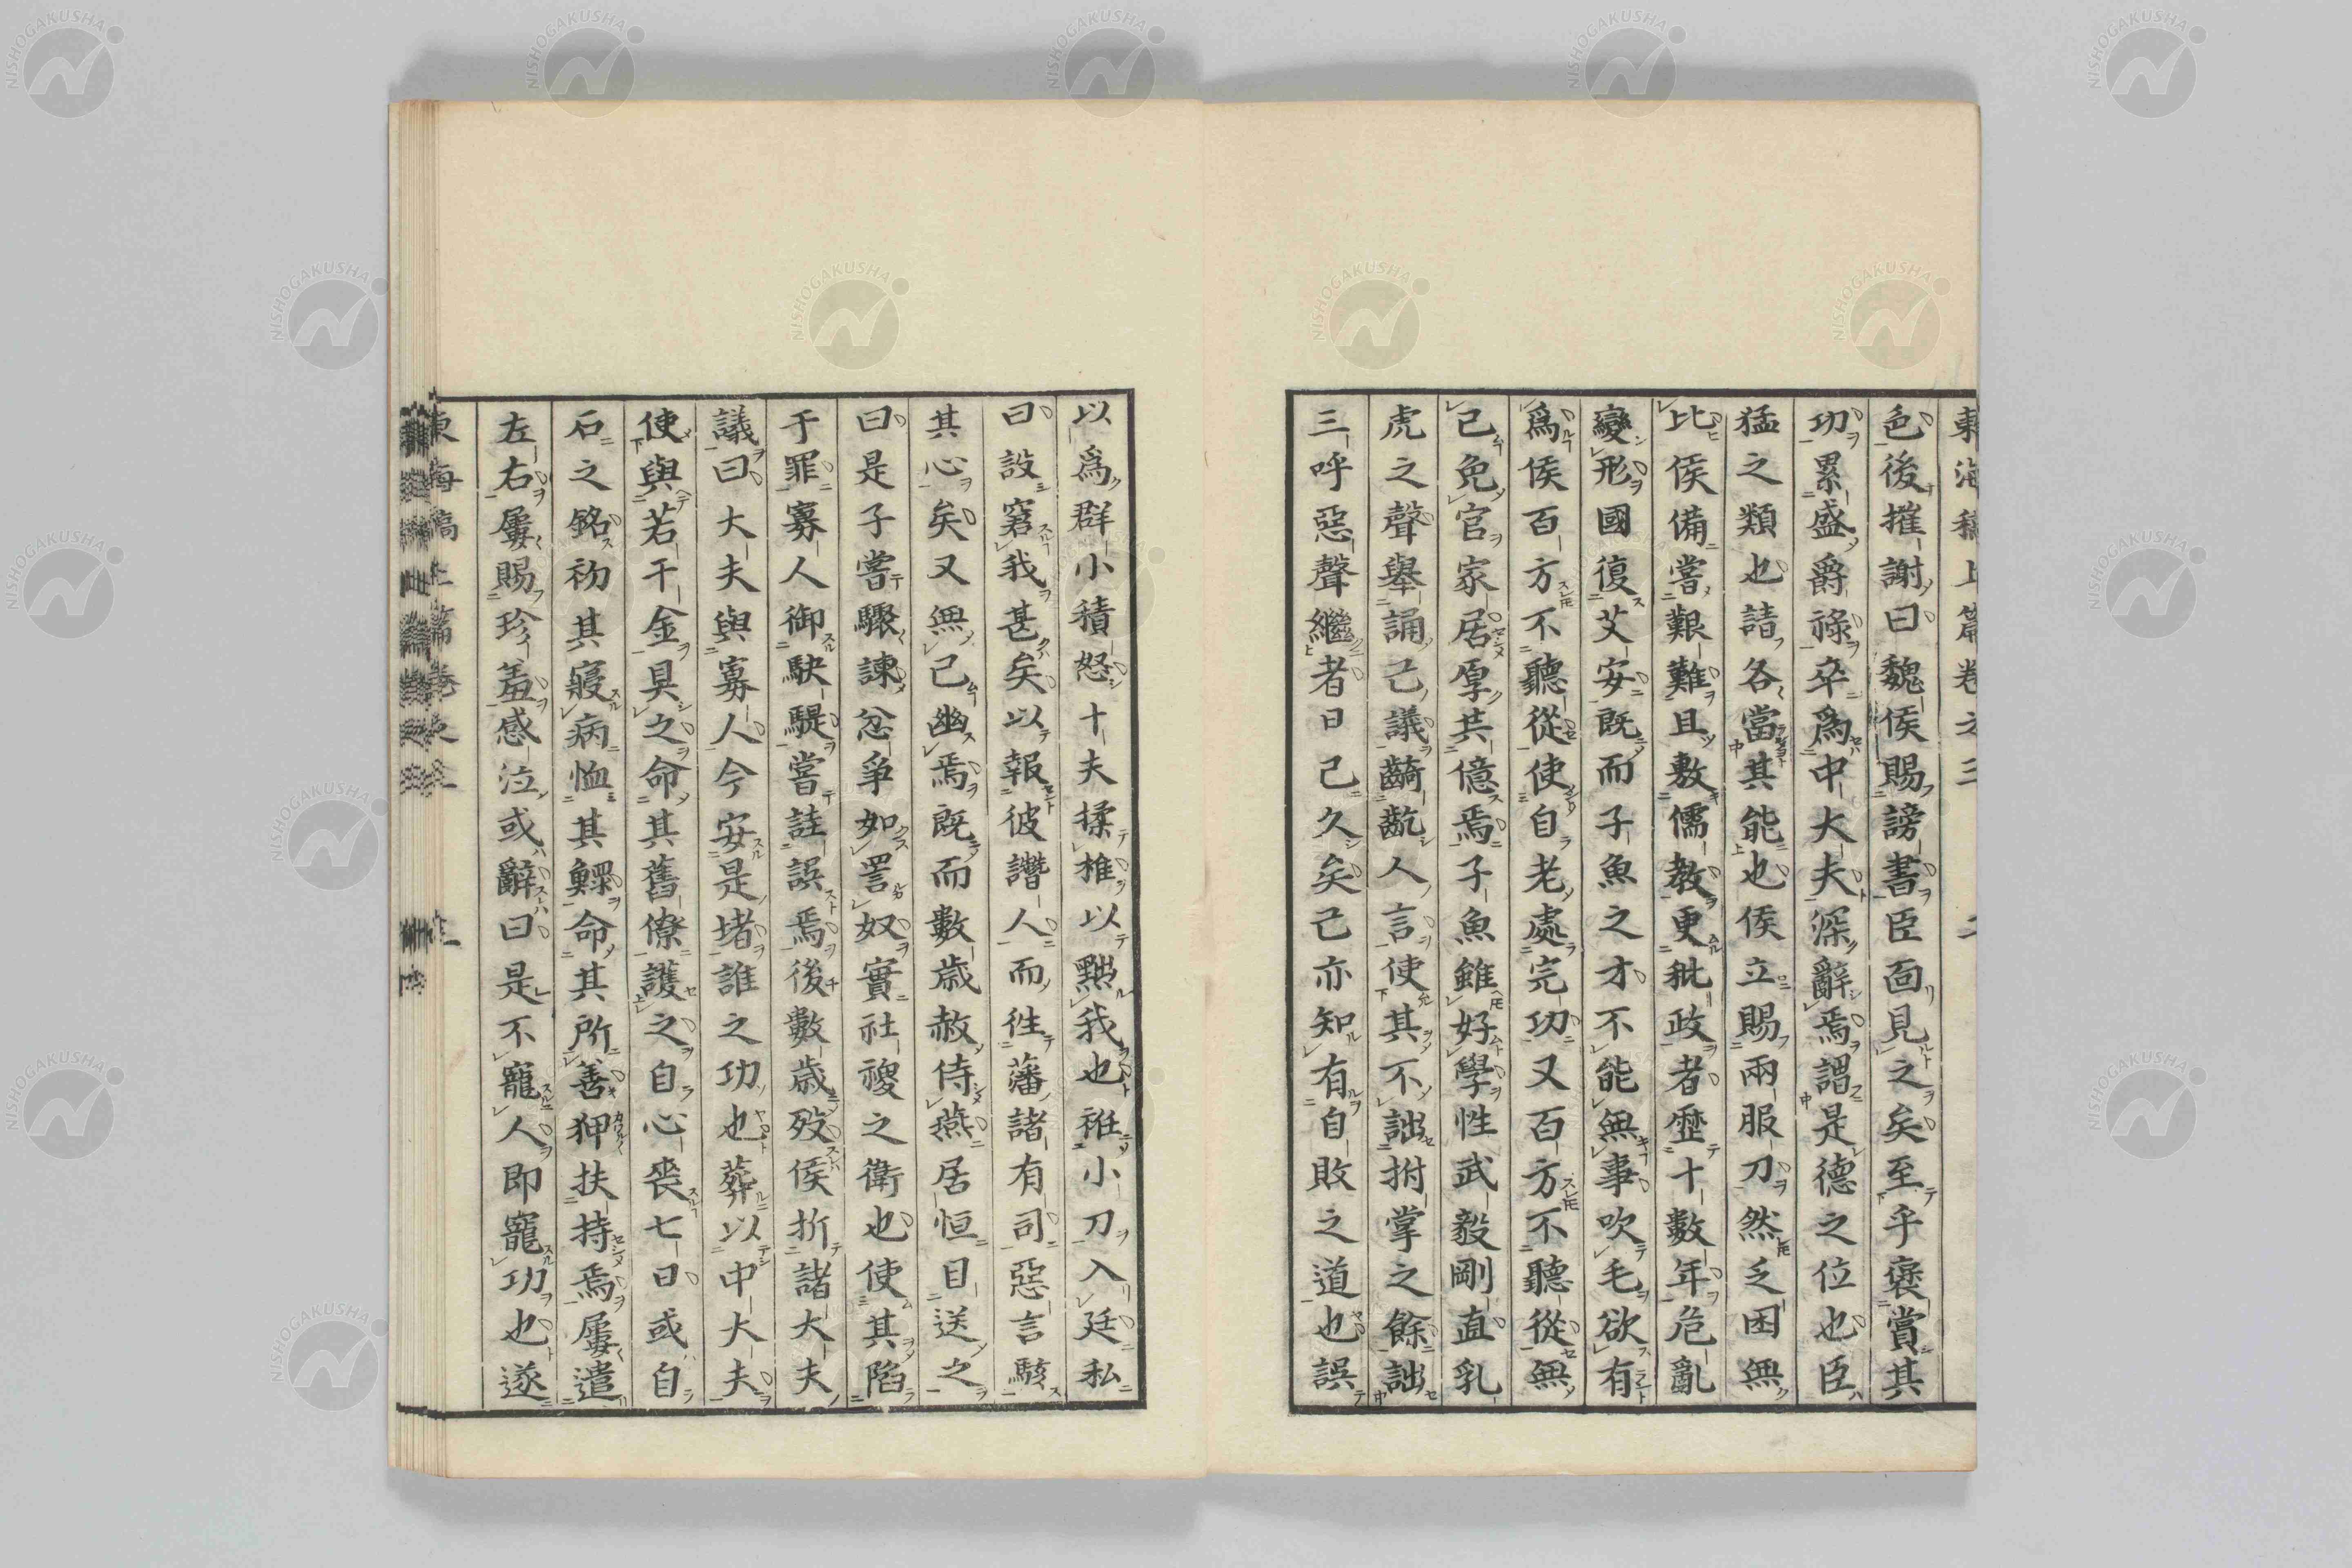 東海稿上篇卷之三
色後摧謝曰魏侯賜謗書臣靣見之矣至乎褒賞其
功累盛爵祿卒爲中大夫深辭焉謂是德之位也臣
猛之類也請各當其能也侯立賜兩服刀然乏困無
比侯備嘗艱難且敷儒教更秕政者歷十數年危亂
變形國復艾安既而子魚之才不能無事吹毛欲有
爲侯百方不聽從使自老處完功又百方不聽從無
已免官家居厚其億焉子魚雖好學性武毅剛直乳
虎之聲舉誦己議齮齕人言使其不詘拊掌之餘詘
三呼惡聲繼者日已久矣己亦知有自敗之道也誤
以爲群小積怒十夫揉椎以黜我也袵小刀入廷私
曰設窘我甚矣以報彼讒人而徃藩諸有司惡言駭
其心矣又無已幽焉既而數歲赦侍燕居恒目送之
曰是子嘗驟諫忿爭如詈奴實社稷之衛也使其陷
于罪寡人御駃騠嘗詿誤焉後數歲歿侯折諸大夫
議曰大夫與寡人今安是堵誰之功也葬以中大夫
使與若干金具之命其舊僚護之自心喪七日或自
石之銘初其寢病恤其鰥命其所善狎扶持焉屢遣
左右屢賜珍羞感泣或辭曰是不寵人即寵功也遂
東海稿上篇卷之三
NISHOGAKUSHA